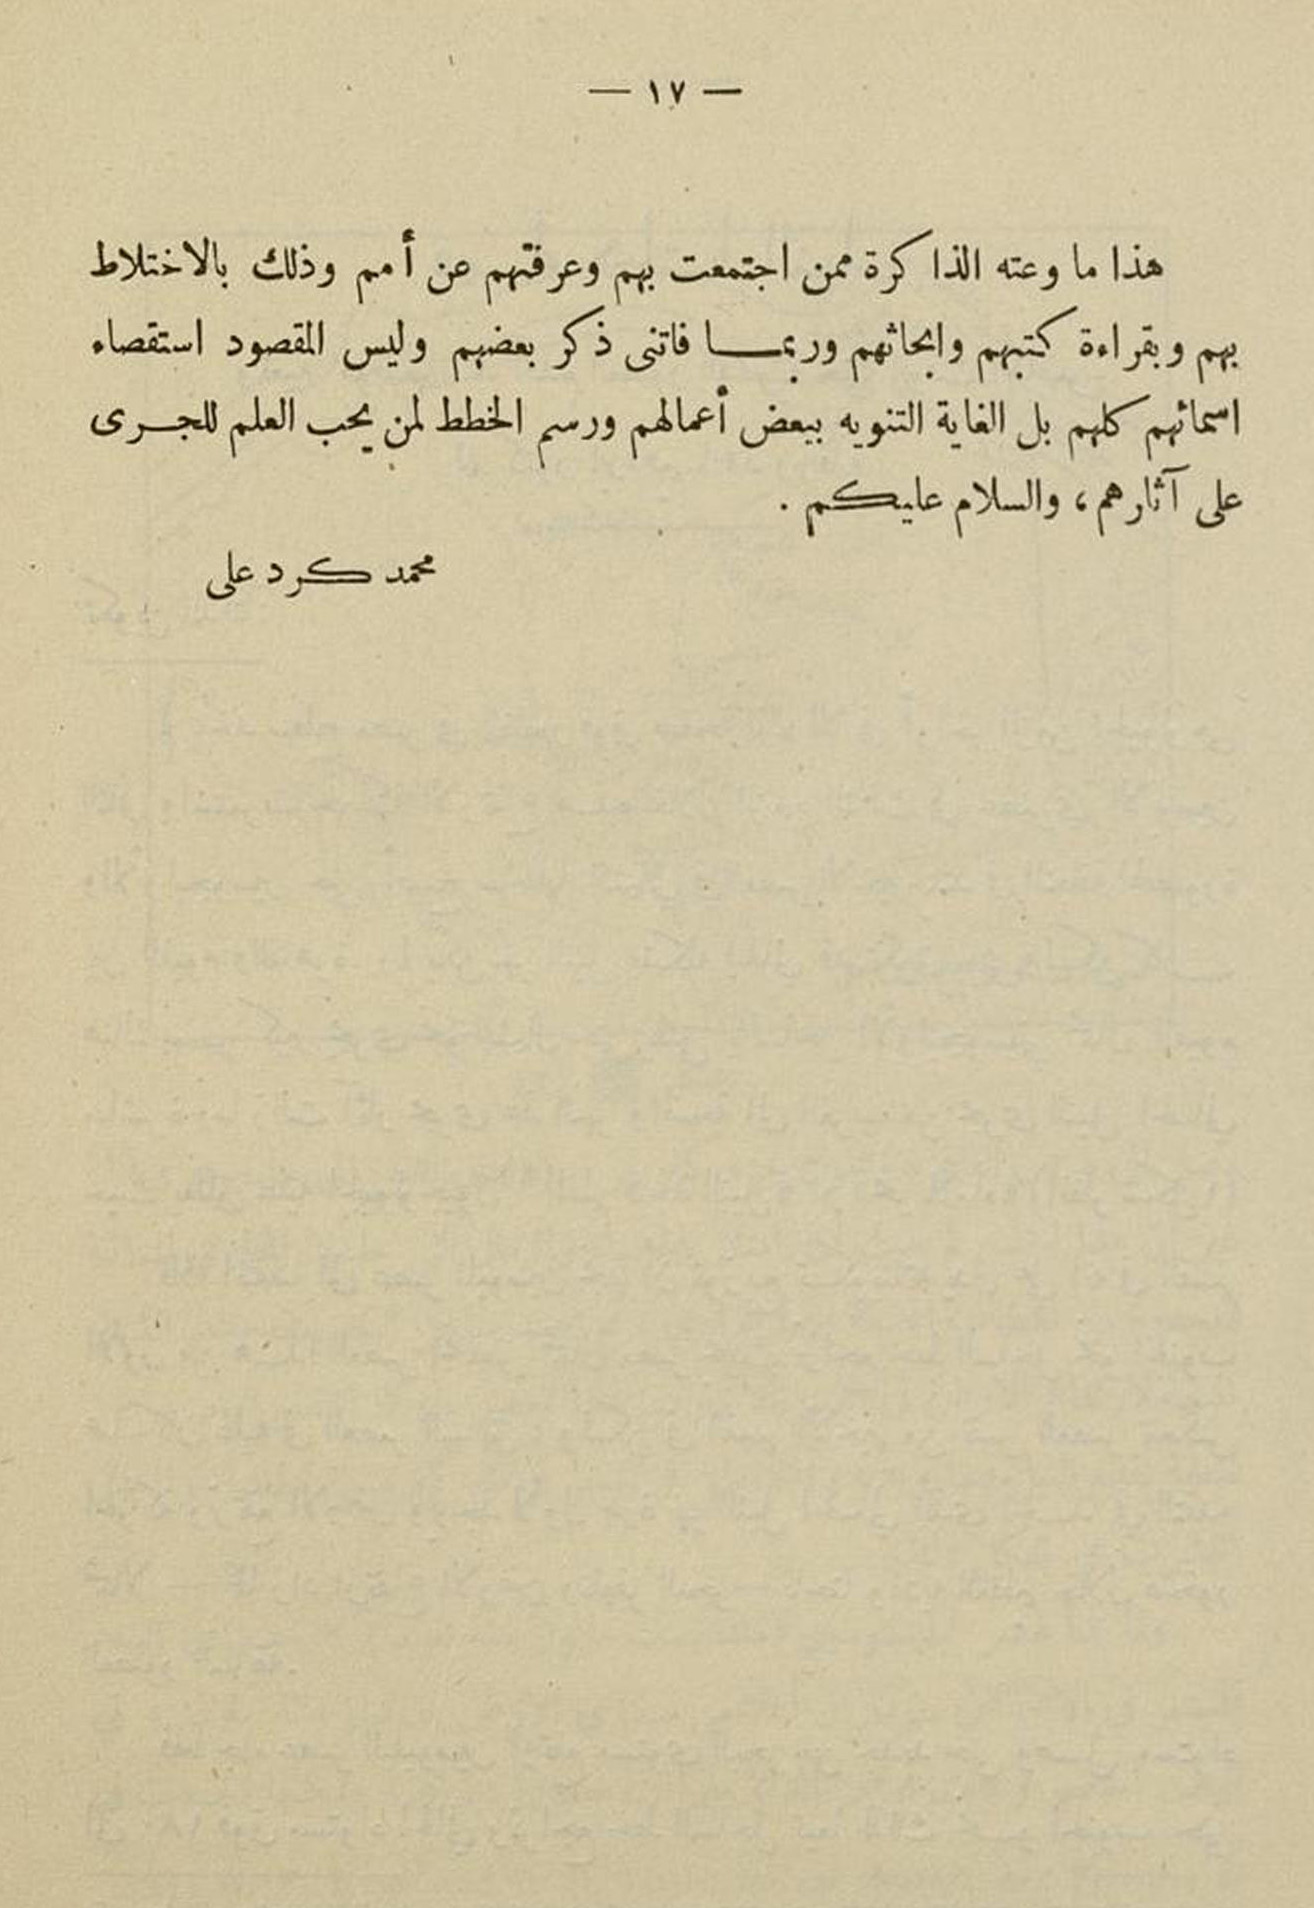 — ١٧ —
هذا ما وعته الذاكرة ممن اجتمعت بهم وعرفتهم عن أمم وذلك بالاختلاط
بهم وبقراءة كتبهم وابحاثهم وربمـــا فاتنى ذكر بعضهم وليس المقصود استقصاء
اسمائهم كلهم بل الغاية التنويه ببعض أعمالهم ورسم الخطط لمن يحب العلم للجـرى
على آثارهم، والسلام عليكم .
محمد كرد على